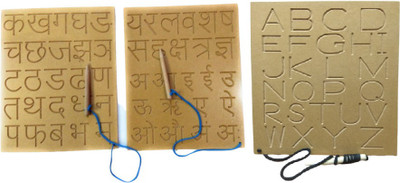 कखगघङ
चछजझञ
टठडढण
तथदधन
पफबभम
यरलवशष
सहक्षत्रज्ञ
अआइईउ
ऊऋएऐ
ओऔअंअः
ABCD
EFGHI
JKLM
NOPQ
RSTUV
WXYZ